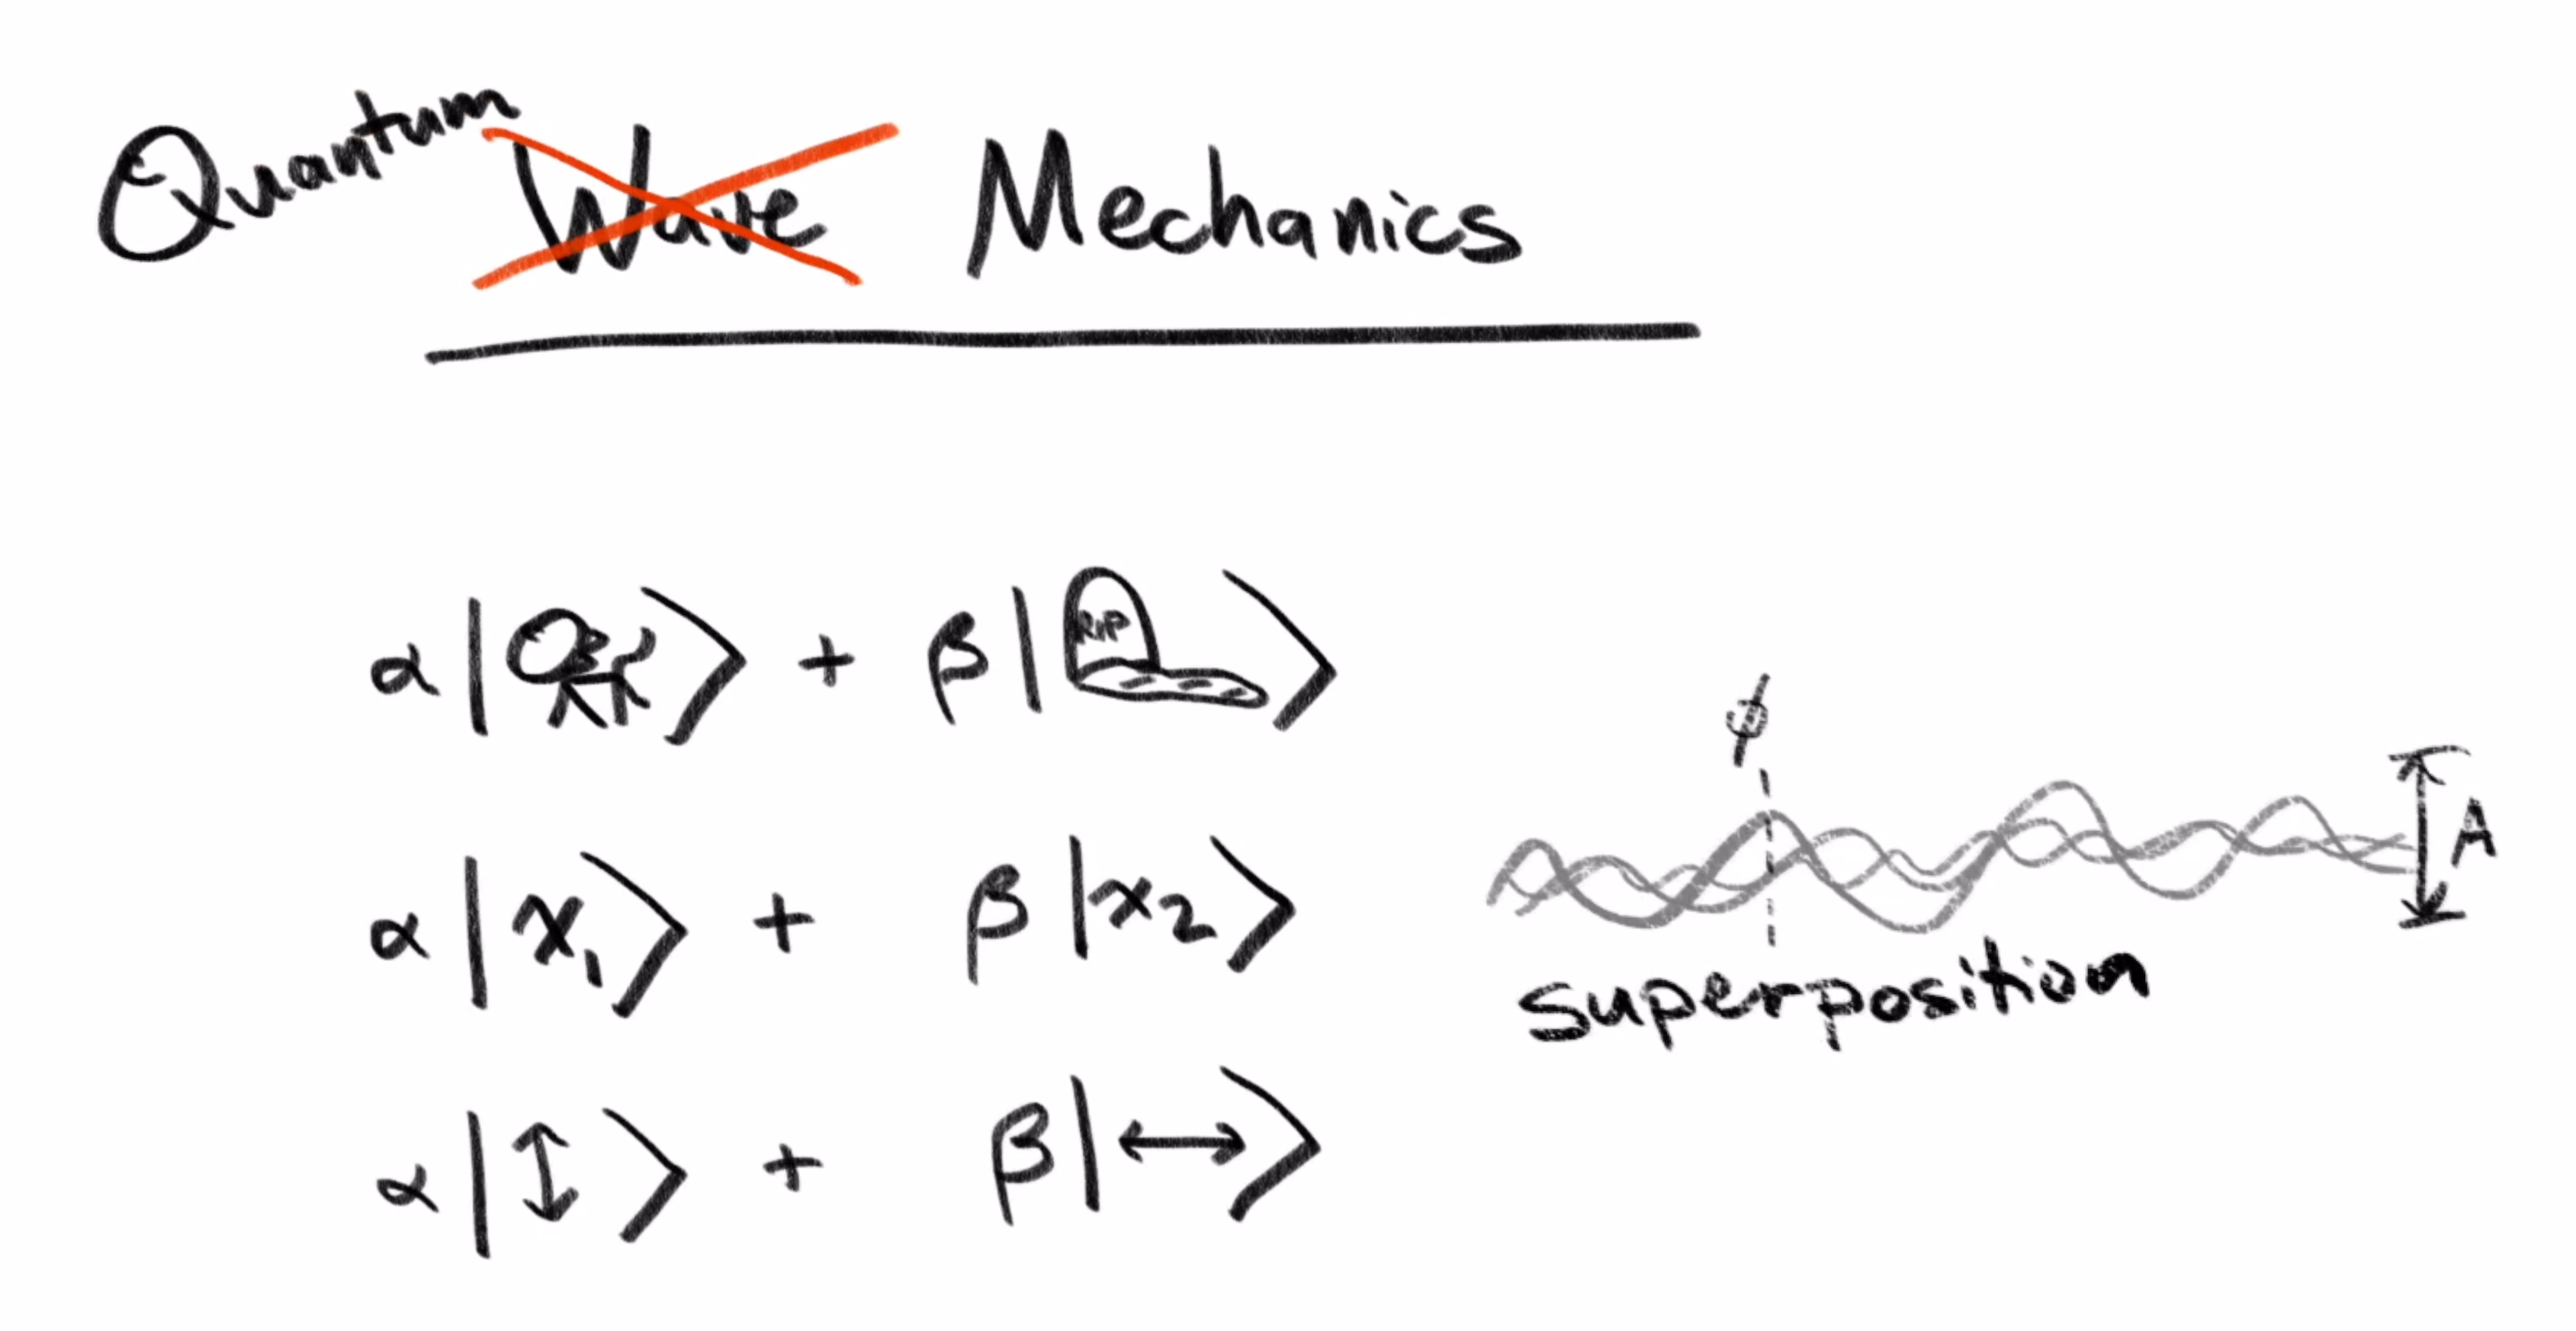 Quantum Wave Mechanics
α| ⟩ + β|RIP⟩
ϕ
A
α|x₁⟩ + β|x₂⟩
superposition
α|↕⟩ + β|↔⟩